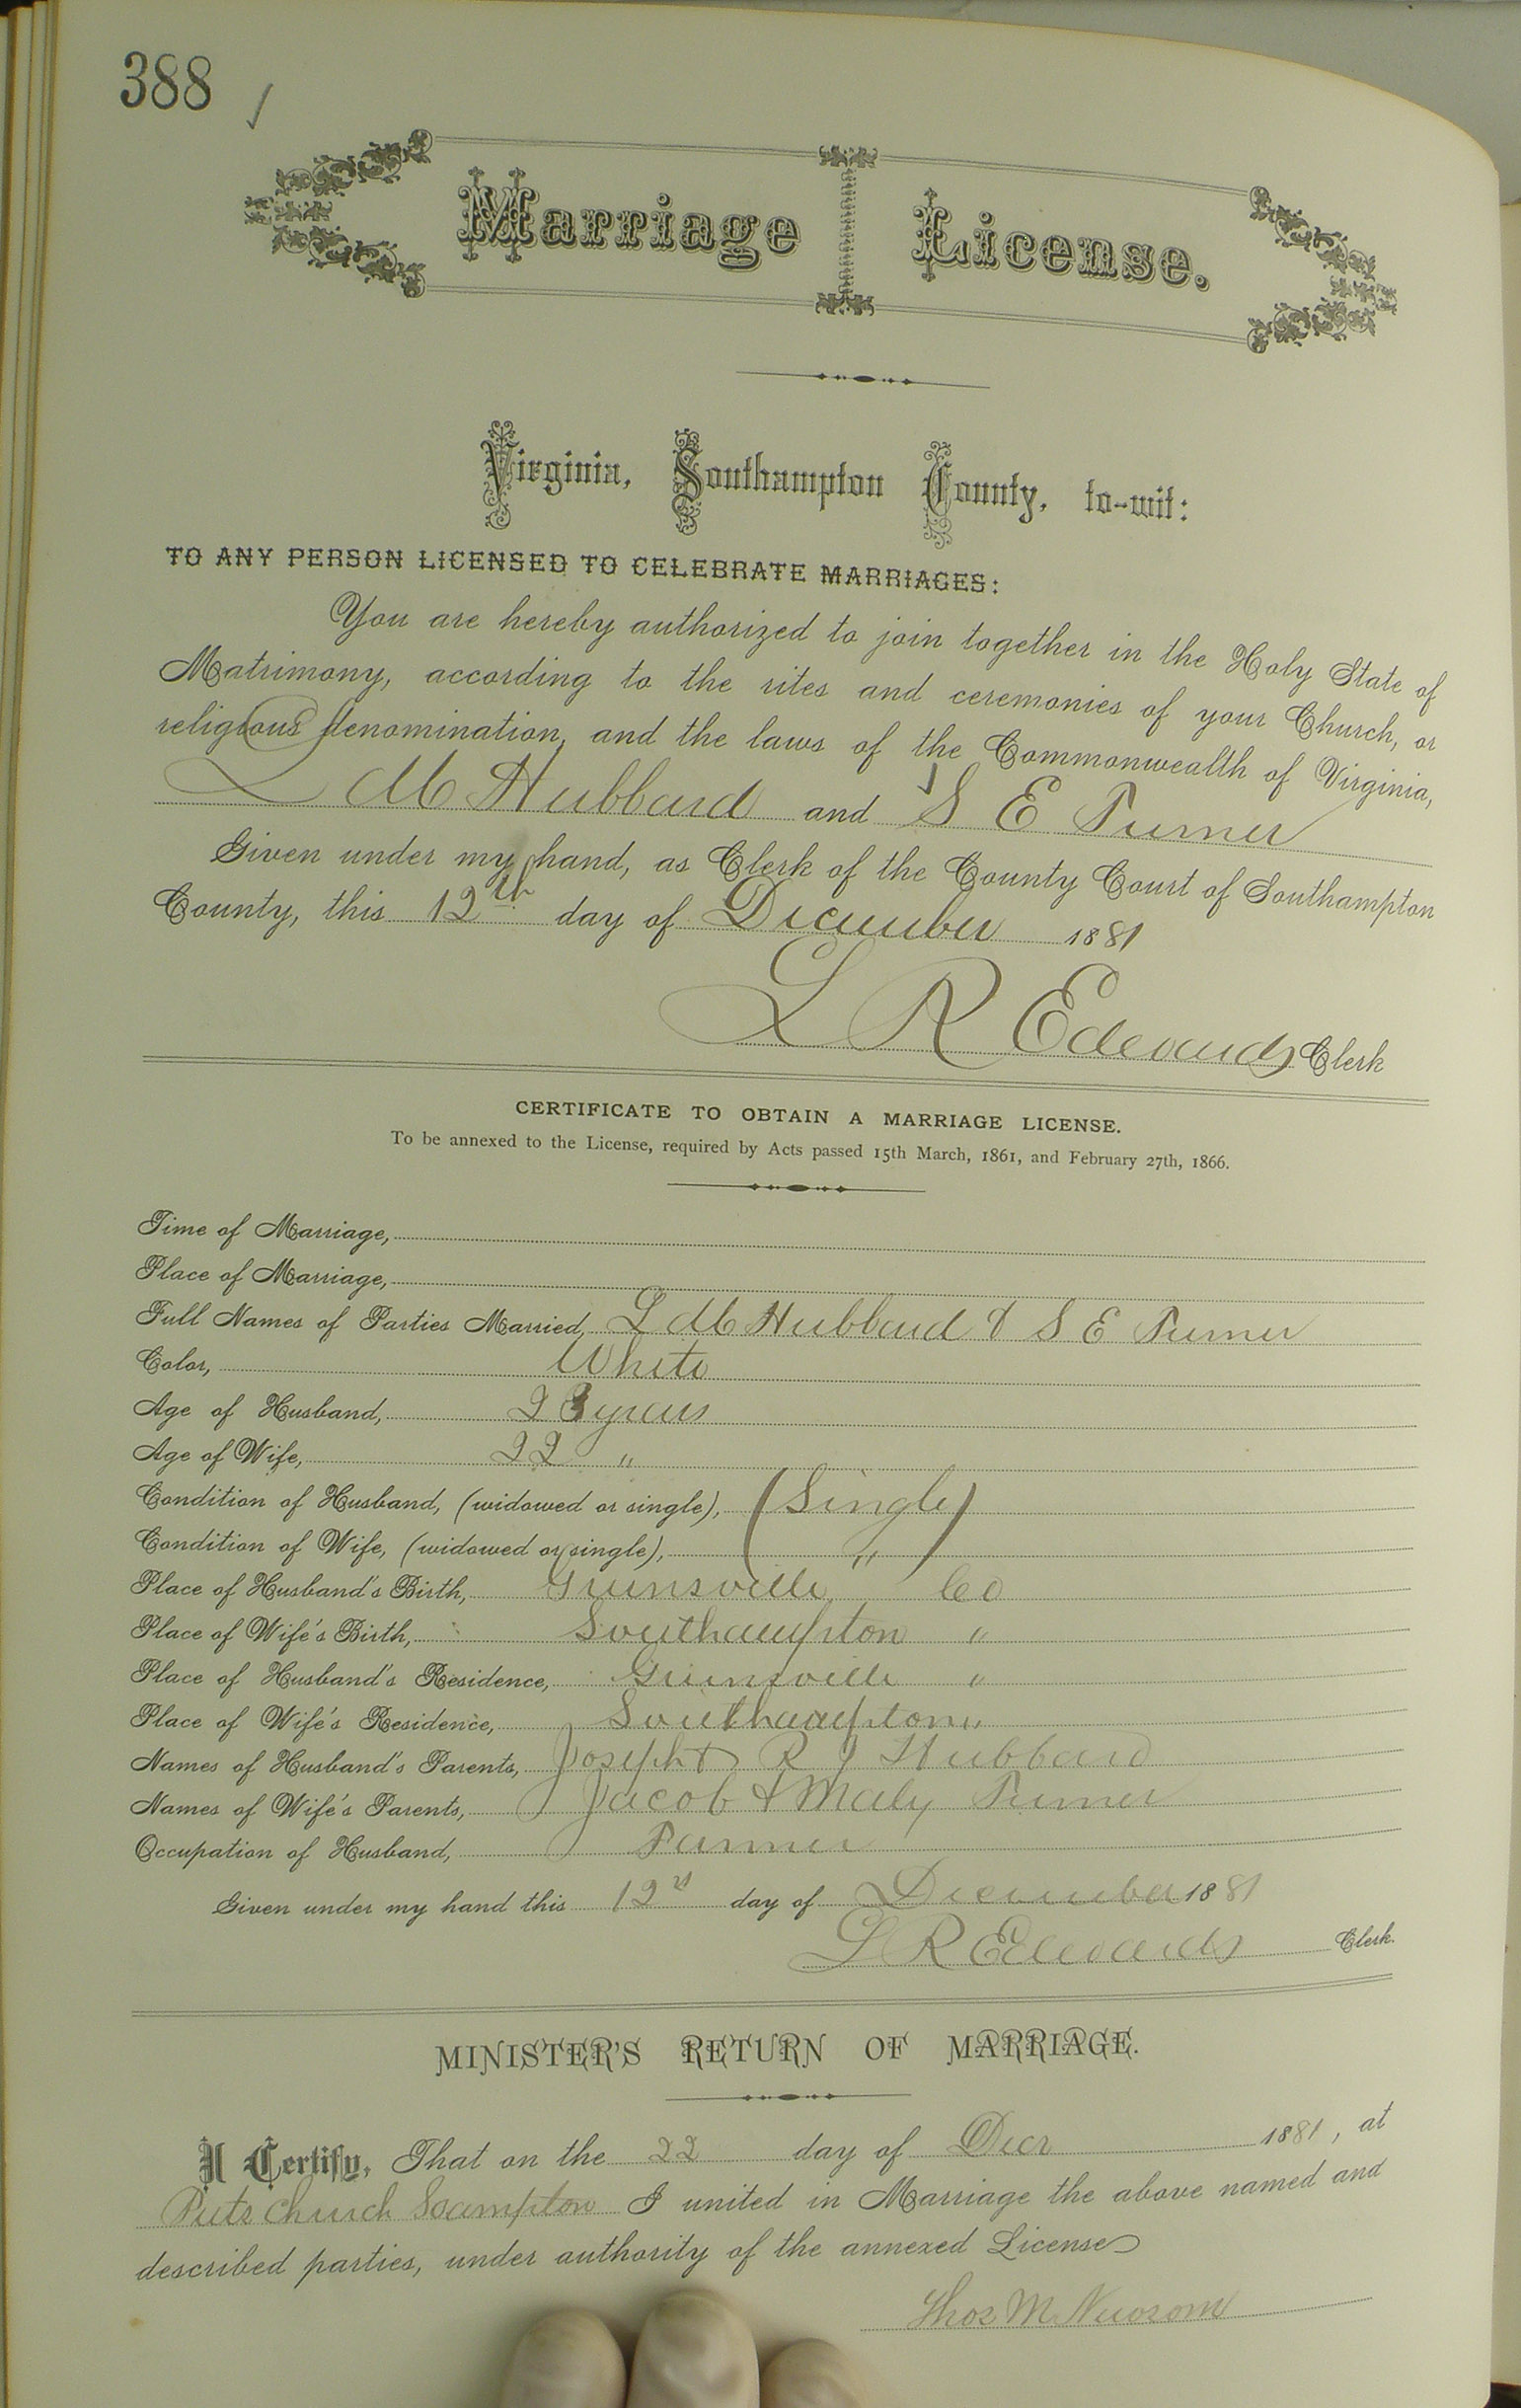 388
Marriage License.
Virginia, Southampton County, to-wit:
TO ANY PERSON LICENSED TO CELEBRATE MARRIAGES:
You are hereby authorized to join together in the Holy State of
Matrimony, according to the rites and ceremonies of your Church, or
religious denomination, and the laws of the Commonwealth of Virginia,
L M Hubbard and S E Turner
Given under my hand, as Clerk of the County Court of Southampton
County, this 12th day of December 1881
L R Edwards Clerk
CERTIFICATE TO OBTAIN A MARRIAGE LICENSE.
To be annexed to the License, required by Acts passed 15th March, 1861, and February 27th, 1866.
Time of Marriage,
Place of Marriage,
Full Names of Parties Married, L M Hubbard & S E Turner
Color, White
Age of Husband, years
Age of Wife, 22 "
Condition of Husband, (widowed or single), (Single)
Condition of Wife, (widowed or single), "
Place of Husband's Birth, Greensville Co
Place of Wife's Birth, Southampton "
Place of Husband's Residence, Greensville "
Place of Wife's Residence, Southampton "
Names of Husband's Parents, Joseph & R J Hubbard
Names of Wife's Parents, Jacob & Turner
Occupation of Husband, Farmer
Given under my hand this 12 day of December 1881
L R Edwards Clerk.
MINISTER'S RETURN OF MARRIAGE.
I Certify, That on the 22 day of Decr 1881, at
Church Sampton I united in Marriage the above named and
described parties, under authority of the annexed License
Thos M. Newsom